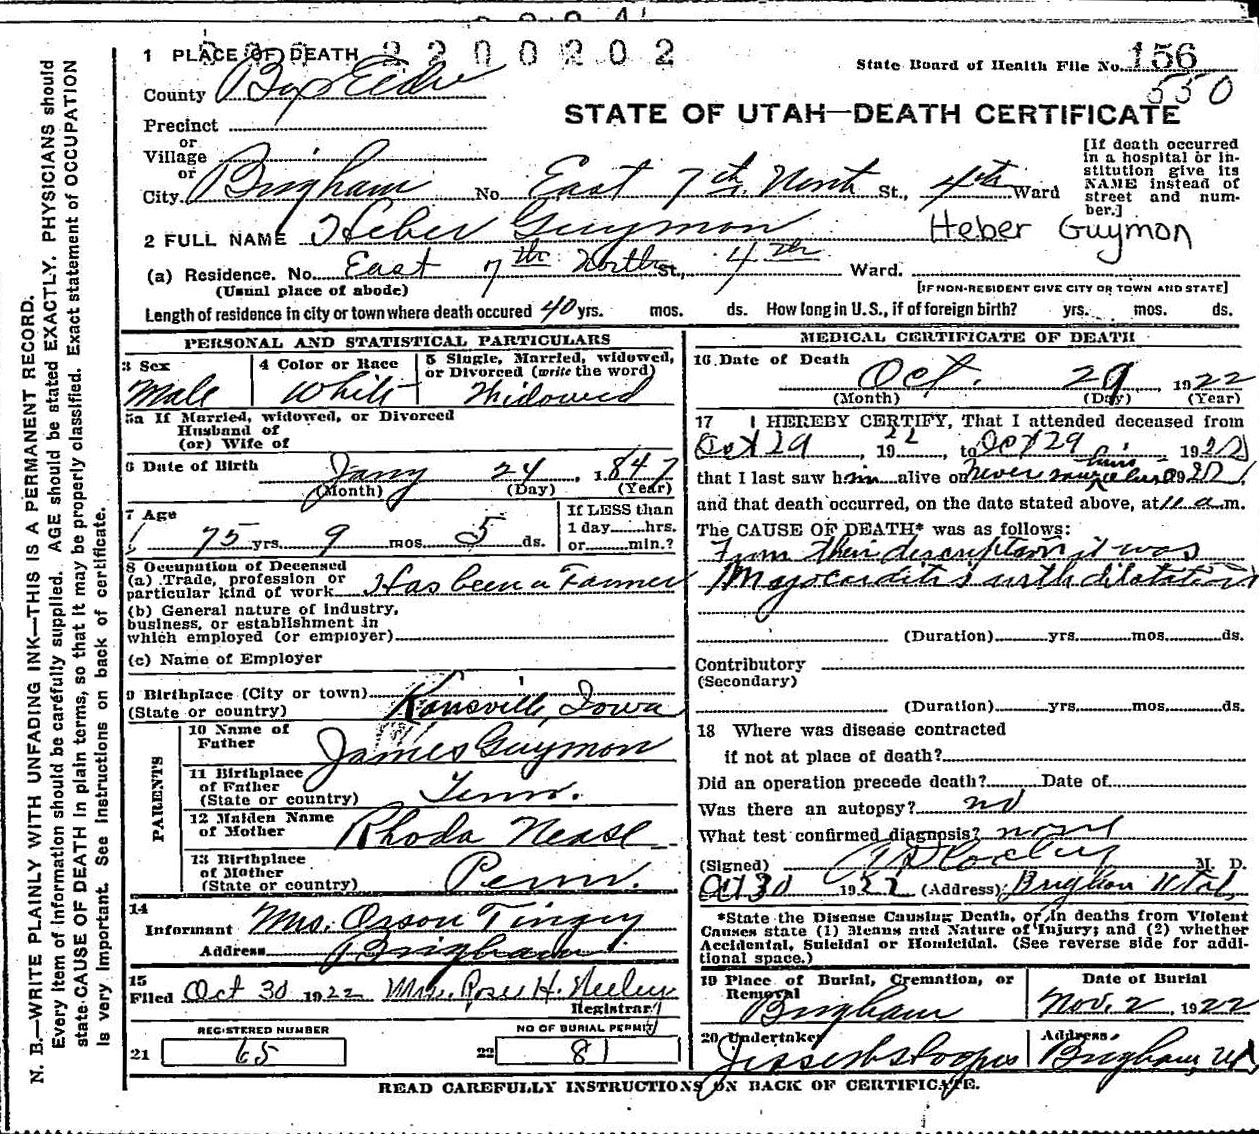 2200202
1 PLACE OF DEATH
State Board of Health File No. 156
550
County Box Elder
STATE OF UTAH—DEATH CERTIFICATE
Precinct
or
Village
or
City Brigham No. East 7th North St., 4th Ward
[If death occurred in a hospital or institution give its NAME instead of street and number.]
2 FULL NAME Heber Guymon Heber Guymon
(a) Residence. No. East 7th North St., 4th Ward.
(Usual place of abode) [IF NON-RESIDENT GIVE CITY OR TOWN AND STATE]
Length of residence in city or town where death occured 40 yrs. mos. ds. How long in U.S., if of foreign birth? yrs. mos. ds.
PERSONAL AND STATISTICAL PARTICULARS
3 Sex Male
4 Color or Race White
5 Single, Married, widowed, or Divorced (write the word) Widowed
5a If Married, widowed, or Divorced
Husband of
(or) Wife of
6 Date of Birth Jany 24, 1847
(Month) (Day) (Year)
7 Age 75 yrs. 9 mos. 5 ds.
If LESS than
1 day hrs.
or min.?
8 Occupation of Deceased
(a) Trade, profession or
particular kind of work Has been a Farmer
(b) General nature of industry,
business, or establishment in
which employed (or employer)
(c) Name of Employer
9 Birthplace (City or town) Kansville, Iowa
(State or country)
PARENTS
10 Name of
Father James Guymon
11 Birthplace
of Father Tenn.
(State or country)
12 Maiden Name
of Mother Rhoda Nease
13 Birthplace
of Mother Penn.
(State or country)
14
Informant Mrs. Orson Tingey
Address Brigham
15
Filed Oct 30 1922 Mrs. Rose H.
Registrar
REGISTERED NUMBER
21 65
NO OF BURIAL PERMIT
22 81
MEDICAL CERTIFICATE OF DEATH
16 Date of Death
Oct. 29, 1922
(Month) (Day) (Year)
17 I HEREBY CERTIFY, That I attended deceased from
Oct 29, 1922, to Oct 29, 1922
that I last saw him alive on never 192
and that death occurred, on the date stated above, at 11 a.m.
The CAUSE OF DEATH* was as follows:
From their description it was
Myocarditis with dilatation
(Duration) yrs. mos. ds.
Contributory
(Secondary)
(Duration) yrs. mos. ds.
18 Where was disease contracted
if not at place of death?
Did an operation precede death? Date of
Was there an autopsy? no
What test confirmed diagnosis? none
(Signed) M. D.
Oct 30 1922 (Address) Brigham Utah
*State the Disease Causing Death, or in deaths from Violent
Causes state (1) Means and Nature of Injury; and (2) whether
Accidental, Suicidal or Homicidal. (See reverse side for addi-
tional space.)
19 Place of Burial, Cremation, or
Removal
Brigham
Date of Burial
Nov. 2, 1922
20 Undertaker
Address
Brigham, Ut
READ CAREFULLY INSTRUCTIONS ON BACK OF CERTIFICATE.
N. B.—WRITE PLAINLY WITH UNFADING INK—THIS IS A PERMANENT RECORD.
Every item of information should be carefully supplied. AGE should be stated EXACTLY. PHYSICIANS should
state CAUSE OF DEATH in plain terms, so that it may be properly classified. Exact statement of OCCUPATION
is very important. See instructions on back of certificate.